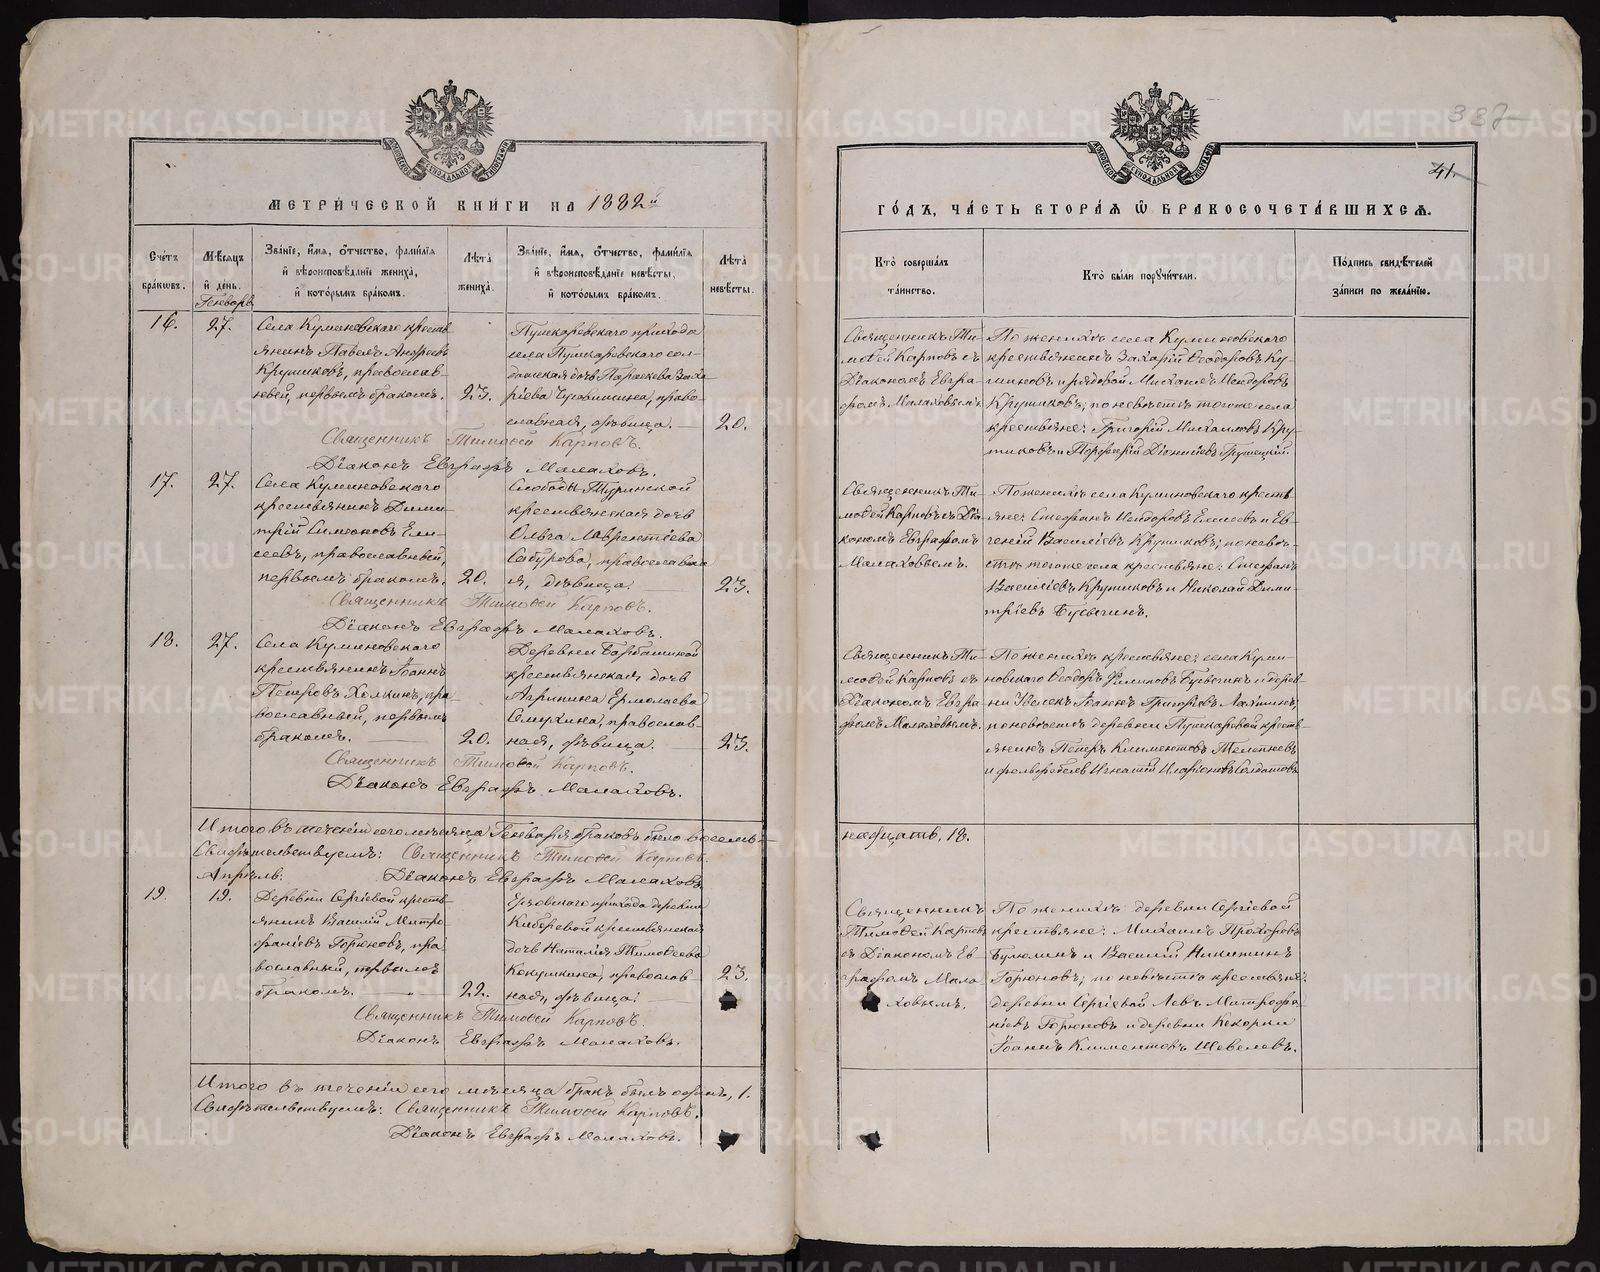 МЕТРИЧЕСКОЙ КНИГИ НА 1882й
Счетъ браковъ.
Мѣсяцъ и день.
Званіе, имя, отчество, фамилія и вѣроисповѣданіе жениха, и которымъ бракомъ.
Лѣта жениха.
Званіе, имя, отчество, фамилія и вѣроисповѣданіе невѣсты, и которымъ бракомъ.
Лѣта невѣсты.
Генварь
16.
27.
Села Куминовскаго кресть-
янинъ Павелъ Андреевъ
Крутиковъ, православ-
ный, первымъ бракомъ.
23.
Пушкаревскаго прихода
села Пушкаревскаго сол-
датская дочь Параскева Заха-
ріева, право-
славная, дѣвица.
20.
Священникъ Тимоѳей Карповъ.
Діаконъ Евграфъ Малаховъ.
17.
27.
Села Куминовскаго
крестьянинъ Дими-
трій Симеоновъ Ели-
сеевъ, православный,
первымъ бракомъ.
20.
Слободы Туринской
крестьянская дочь
Ольга Лаврентіева
Сабурова, православна
я, дѣвица.
23.
Священникъ Тимоѳей Карповъ.
Діаконъ Евграфъ Малаховъ.
18.
27.
Села Куминовскаго
крестьянинъ Іоаннъ
Петровъ Холкинъ, пра-
вославный, первымъ
бракомъ.
20.
Деревни
крестьянская дочь
Агрипина Ермолаева
православ-
ная, дѣвица.
23.
Священникъ Тимоѳей Карповъ.
Діаконъ Евграфъ Малаховъ.
Итого въ теченіи сего мѣсяца Генваря браковъ было восемь-
Свидѣтельствуемъ: Священникъ Тимоѳей Карповъ.
Апрѣль.
Діаконъ Евграфъ Малаховъ
19.
19.
Деревни Сергіевой кресть-
янинъ Василій Митро-
фаніевъ Горюновъ, пра-
вославный, первымъ
бракомъ.
22.
прихода деревни
крестьянская
дочь Наталія Тимоѳеева
Кокушкина, православ
ная, дѣвица.
23.
Священникъ Тимоѳей Карповъ.
Діаконъ Евграфъ Малаховъ.
Итого въ теченіи сего мѣсяца бракъ былъ одинъ, 1.
Свидѣтельствуемъ: Священникъ Тимоѳей Карповъ.
Діаконъ Евграфъ Малаховъ.
41.
ГОДЪ, ЧАСТЬ ВТОРАЯ Ѡ БРАКОСОЧЕТАВШИХСЯ.
Кто совершалъ таинство.
Кто были поручители.
Подпись свидѣтелей записи по желанію.
Священникъ Ти-
моѳей Карповъ съ
Діакономъ Евгра-
фомъ Малаховымъ.
По женихѣ села Куминовскаго
крестьянинъ Захарій Ѳеодоровъ Ку-
и рядовой Михаилъ Исидоровъ
Крутиковъ; по невѣстѣ того же села
крестьяне: Григорій Михаиловъ Кру-
тиковъ и Порфирій Діонисіевъ
Священникъ Ти-
моѳей Карповъ съ Діа-
кономъ Евграфомъ
Малаховымъ.
По женихѣ села Куминовскаго кресть-
яне: Стефанъ Исидоровъ Елисеевъ и Ев-
геній Василіевъ Крутиковъ; по невѣ-
стѣ того же села крестьяне: Стефанъ
Василіевъ Крутиковъ и Николай Дими-
тріевъ
Священникъ Ти-
моѳей Карповъ съ
Діакономъ Евгра-
фомъ Малаховымъ.
По женихѣ крестьяне: села Куми-
новскаго Ѳеодоръ и дерев-
ни Іоаннъ Григорьевъ
по невѣстѣ деревни Пушкаревой кресть-
янинъ Петръ Климентовъ
и фельдфебель Игнатій Иларіоновъ Солдатовъ
надцать, 18.
Священникъ
Тимоѳей Карповъ
съ Діакономъ Ев
графомъ Мала
ховымъ.
По женихѣ деревни Сергіевой
крестьяне: Михаилъ Прохоровъ
и Василій Никитинъ
Горюновъ; по невѣстѣ крестьяне:
деревни Сергіевой Левъ Митрофа-
ніевъ Горюновъ и деревни
Іоаннъ Климентовъ Шевелевъ.